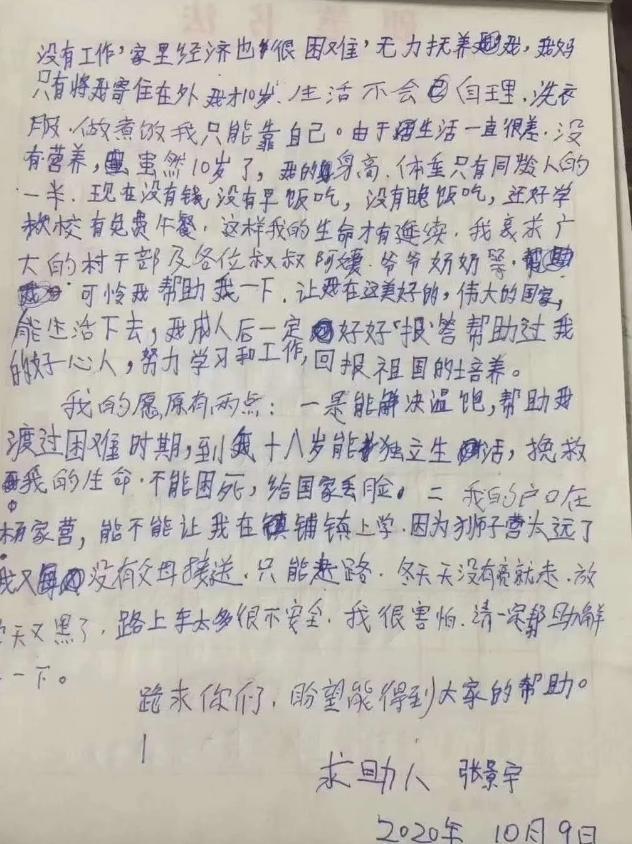 没有工作,家里经济也很困难,无力抚养我,我妈
只有将我寄住在外 我才10岁.生活不会自理.洗衣
服.做煮饭我只能靠自己。由于生活一直很差.没
有营养,虽然10岁了,我的身高.体重只有同龄人的
一半.现在没有钱,没有早饭吃,没有晚饭吃,还好学
校有免费午餐,这样我的生命才有延续.我哀求广
大的村干部及各位叔叔阿姨.爷爷奶奶等,
可怜我帮助我一下.让我在这美好的,伟大的国家,
能生活下去,我成人后一定好好"报"答帮助过我
的好心人,努力学习和工作,回报祖国的培养。
我的愿原有两点:一是能解决温饱,帮助我
渡过困难时期,到我十八岁能独立生活,挽救
我的生命.不能困死,给国家丢脸。二 我的户口在
杨家营,能不能让我在镇铺镇上学.因为狮子营太远了
我又没有父母接送.只能走路.冬天天没有亮就走.放
学天又黑了,路上车太多很不安全.我很害怕.请一定帮助解
一下。
跪求你们,盼望能得到大家的帮助。
求助人 张景宇
2020年 10月9日